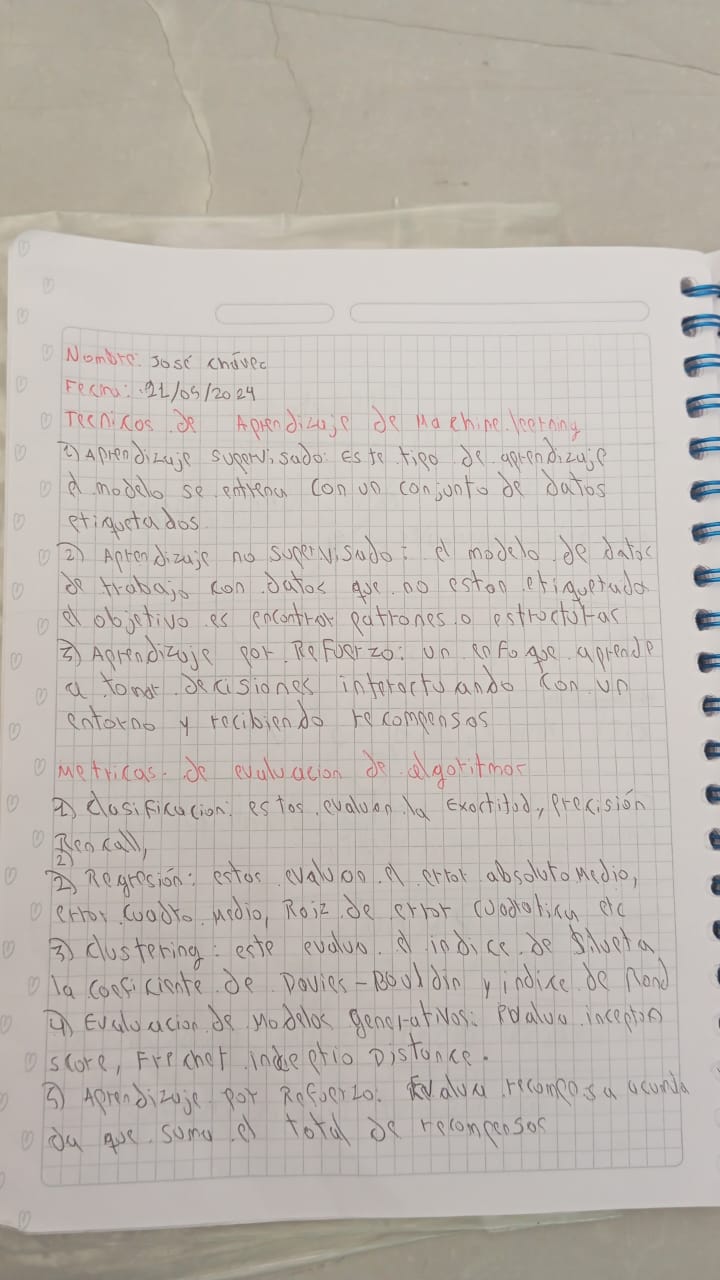 Nombre: José Chávez
Fecha: 21/05/2024
Tecnicas de Aprendizaje de Machine learning
1) Aprendizaje supervisado: Este tipo de aprendizaje
el modelo se entrena con un conjunto de datos
etiquetados
2) Aprendizaje no supervisado: el modelo de datos
de trabajo con datos que no estan etiquetado
el objetivo es encontrar patrones o estructuras
3) Aprendizaje por Refuerzo: un enfoque aprende
a tomar decisiones interactuando con un
entorno y recibiendo recompensas
Metricas de evaluacion de algoritmos
1) Clasificacion: estos evaluan la Exactitud, precisión
Rencall,
2) Regresión: estos evaluan el error absoluto medio,
error cuadro medio, Raiz de error cuadratica etc
3) Clustering: este evalua el indice de Silueta
la coeficiente de Davies-Bouldin y indice de Rand
4) Evaluacion de Modelos generativos: Evalua inception
score, Frechet Distance.
5) Aprendizaje por Refuerzo: Evalua recompesa acumla
da que suma el total de recompensas